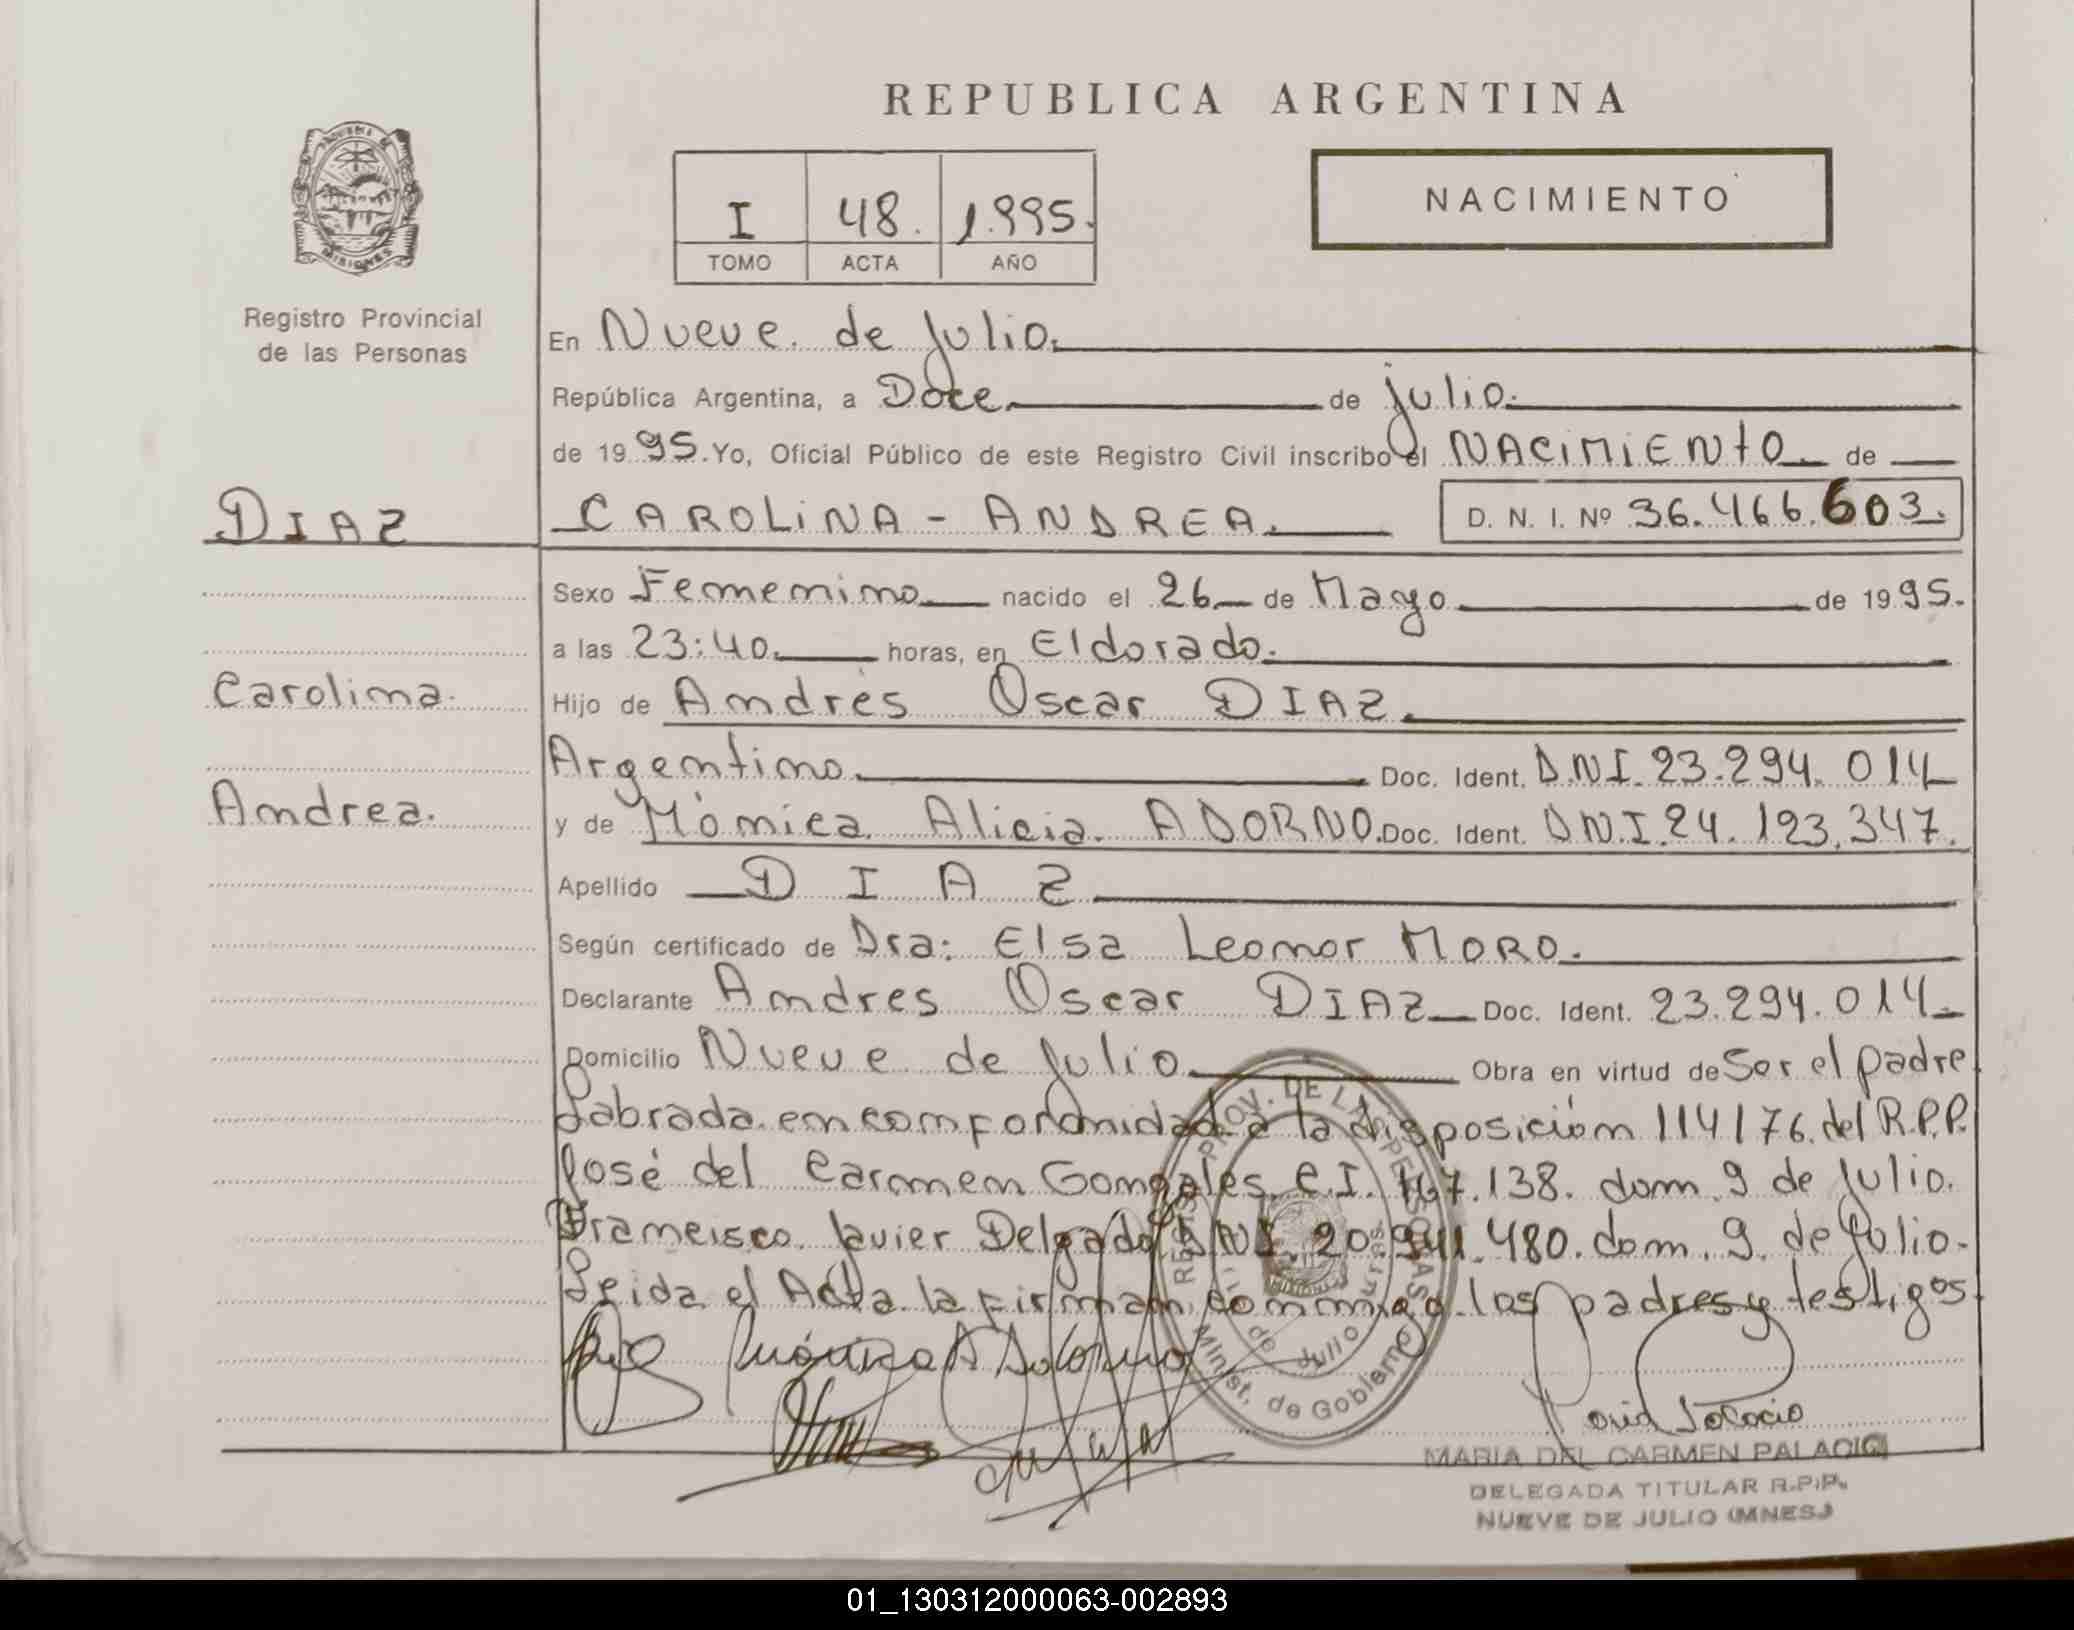 REPUBLICA ARGENTINA
PROVINCIA DE
MISIONES
Registro Provincial
de las Personas
I 48. 1.995.
TOMO ACTA AÑO
NACIMIENTO
En Nueve de Julio.
República Argentina, a Doce de julio.
de 1995. Yo, Oficial Público de este Registro Civil inscribo el NACIMIENTO de
DIAZ
CAROLINA - ANDREA. D. N. I. Nº 36.466.603.
Sexo Femenino nacido el 26 de Mayo de 1995.
a las 23:40. horas, en Eldorado.
Carolina.
Hijo de Andrés Oscar DIAZ.
Argentino. Doc. Ident. D.N.I. 23.294.014
Andrea.
y de Mónica Alicia ADORNO. Doc. Ident. D.N.I. 24.123.347.
Apellido DIAZ
Según certificado de Dra: Elsa Leonor MORO.
Declarante Andres Oscar DIAZ Doc. Ident. 23.294.014.
Domicilio Nueve de Julio. Obra en virtud de Ser el padre
Labrada en conformidad a la disposición 114176 del R.P.P.
José del Carmen Gonzales C.I. 138. dom. 9 de Julio.
Francisco Javier Delgado DNI 20. 480. dom. 9 de Julio.
Leida el Acta la firman conmigo los padres y testigos.
REGIST. PROV. DE LAS PERSONAS
de Julio
Minist. de Gobierno
Mónica A Adorno
María Palacio
MARIA DEL CARMEN PALACIO
DELEGADA TITULAR R.P.P.
NUEVE DE JULIO (MNES.)
01_130312000063-002893